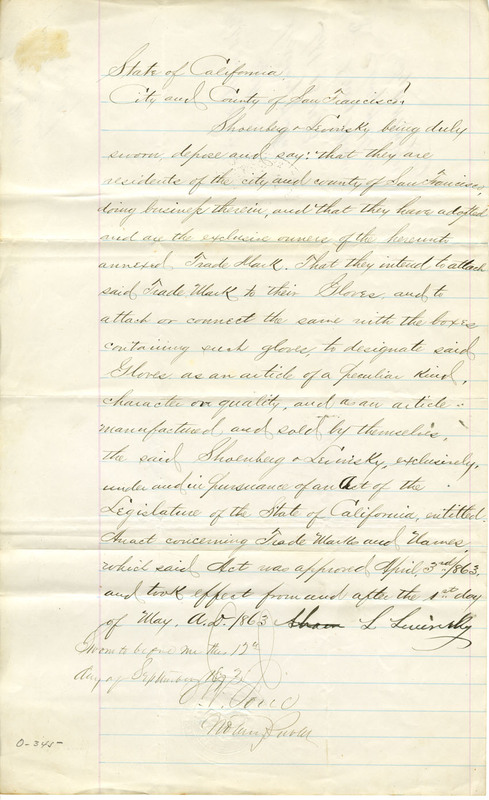 State of California.
City and County of San Francisco.
Shoenberg & Levinsky being duly
sworn, depose and say: that they are
residents of the city and county of San Francisco,
doing business therein, and that they have adopted
and are the exclusive owners of the hereunto
annexed Trade Mark. That they intend to attach
said Trade Mark to their Gloves, and to
attach or connect the same with the boxes
containing such gloves, to designate said
Gloves as an article of a peculiar kind,
character or quality, and as an article
manufactured and sold by themselves,
the said Shoenberg & Levinsky, exclusively,
under and in pursuance of an Act of the
Legislature of the State of California, entitled.
An act concerning Trade Marks and Names,
which said Act was approved April, 3rd 1863.
and took effect from and after the 1st day
of May, A.D. 1863 L Levinsky
Sworn to before me this 12th
day of September 187
Notary Public
0-345